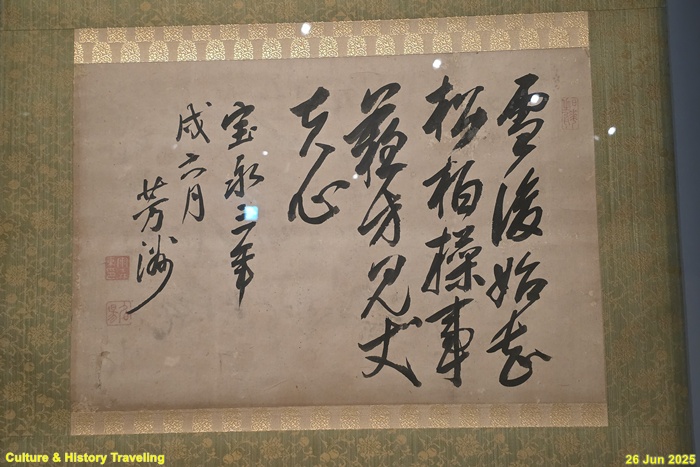 雪後始知
松柏操事
難方見丈
夫心
宝永三年
戌六月
芳洲
Culture & History Traveling
26 Jun 2025